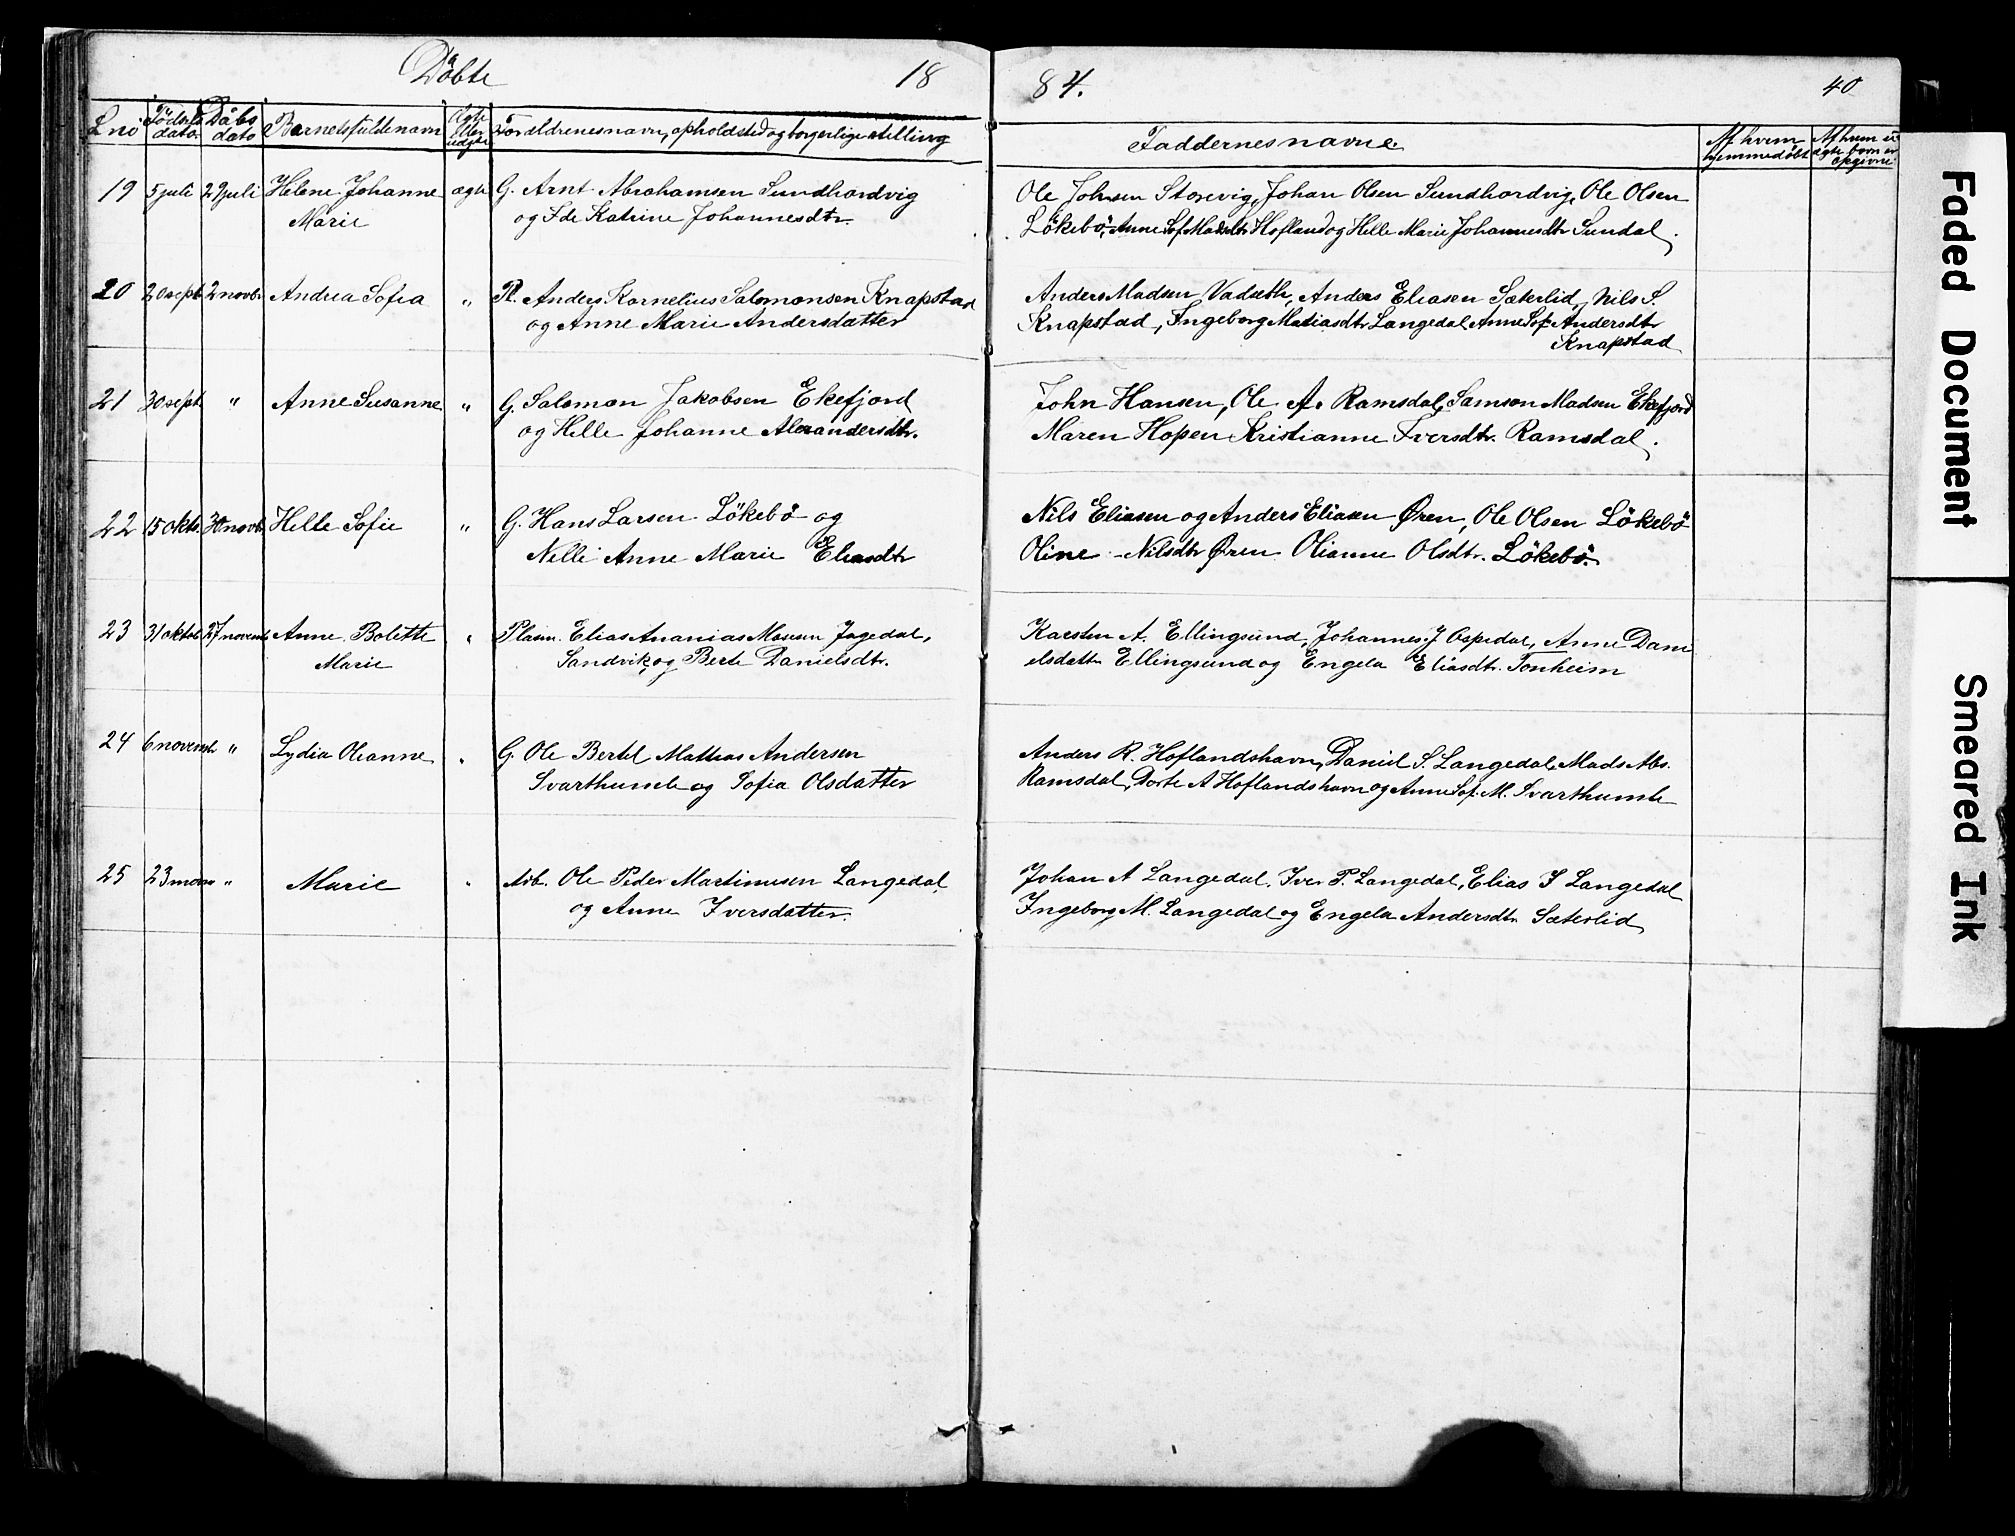 Døbte 18 84. 40
Lno Fødsels dato Dåbs dato Barnets fulde navn Ægte eller uægte Forældrenes navn, opholdsted og borgerlige stilling Faddernes navne. Af hvem hjemmedøbt
19 5 juli 29 juli Helene Johanne ægte G. Arnt Abrahamsen Sundhordvig Ole Johnsen Storevig, Johan Olsen Sundhordvig, Ole Olsen
Marie og Ide Katrine Johannesdtr. Lökebö, Anne Sof. Madsdtr Hofland og Helle Marie Johannesdtr Sundal.
20 20 sept 2 novbr Andrea Sofia " Pl. Anders Kornelius Salomonsen Knapstad Anders Madsen Vadseth, Anders Eliasen Sæterlid, Nils S.
og Anne Marie Andersdatter Knapstad, Ingeborg Matiasdtr Langedal Anne Sof. Andersdtr
Knapstad
21 30 sept. " Anne Susanne " G. Salomon Jakobsen Ekefjord John Hansen, Ole A. Ramsdal, Samson Madsen Ekefjord
og Helle Johanne Alexandersdtr. Maren Hopen Kristianne Iversdtr. Ramsdal.
22 15 okt. 30 novb. Helle Sofie " G. Hans Larsen Lökebö og Nils Eliasen og Anders Eliasen Øren, Ole Olsen Lökebö
Nelli Anne Marie Eliasdtr Oline Nilsdtr Øren Olianne Olsdtr. Lökebö.
23 31 oktob 27 novemb Anne Bolette " Pladsm. Elias Ananias Mosesen Indgedal, Karsten A. Ellingsund, Johannes J Ospedal, Anne Dani
Marie Sandvik og Berte Danielsdtr. elsdatter Ellingsund og Engela Eliasdtr. Tonheim
24 6 novemb " Lydia Oleanne " G. Ole Bertel Mathias Andersen Anders R. Hoflandshavn, Daniel S. Langedal, Mads Abs.
Svarthumle og Sofia Olsdatter Ramsdal, Dorte A Hoflandshavn og Anne Sof. M. Svarthumle
25 23 novem " Marie " Arb. Ole Peder Martinusen Langedal Johan A Langedal. Iver P. Langedal, Elias I Langedal
og Anne Iversdatter. Ingeborg M. Langedal og Engela Andersdtr Sæterlid
Faded Document
Smeared Ink